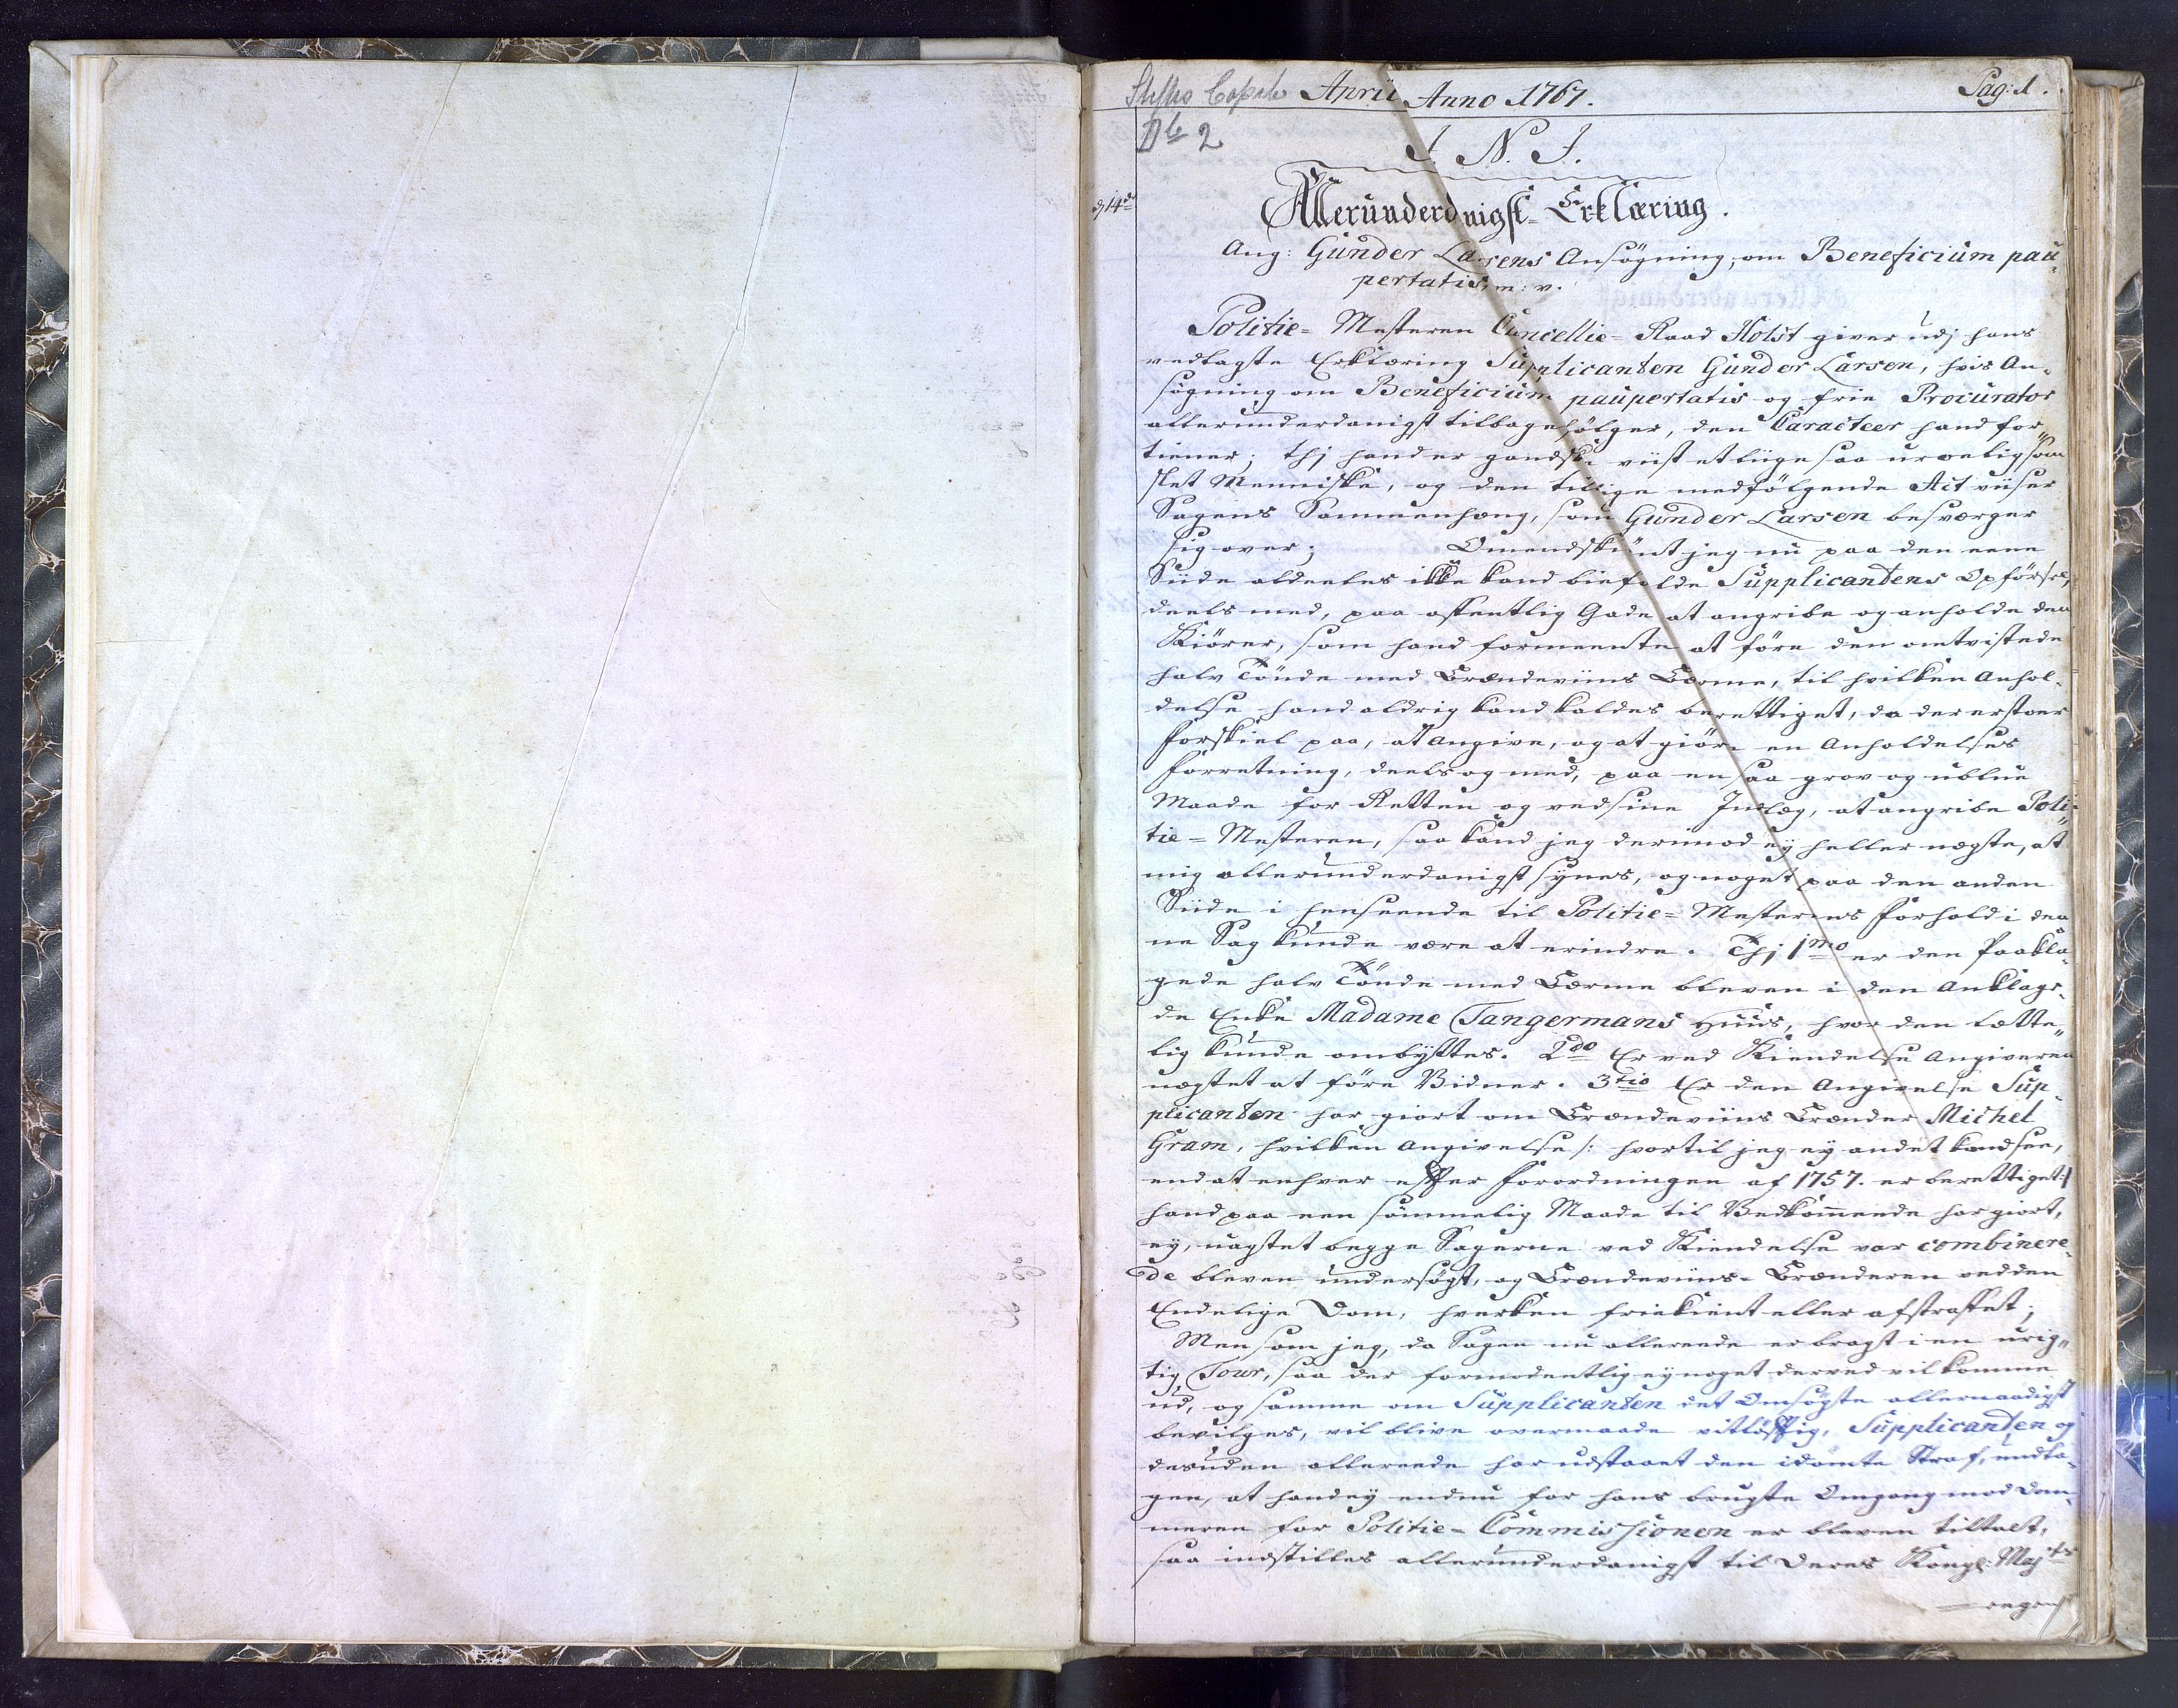 Aprii Anno 1767. Pag: 1.
Db 2
I. N. J.
d 14de
Allerunderdnigst- Erklæring.
Ang: Gunder Larsens Ansögning, om Beneficium pau-
pertatis, m: v.
Politie- Mesteren Cancellie-Raad Holst giver udj hans
vedlagte Erklæring Supplicanten Gunder Larsen, hvis An-
søgning om Beneficium paupertatis og frie Procurator
allerunderdanigst tilbagefølger, den Caracteer hand for-
tiener; thj hand er gandske viist et liige saa uroelig som
slet Menniske, og den tillige medfølgende Act viiser
Sagens Sammenhæng, som Gunder Larsen besværger
sig over; Omendskiønt jeg nu paa den eene
Siide aldeeles ikke kand biefalde Supplicantens Opførsel,
deels med, paa offentlig Gade at angribe og anholde den
Kiörer, som hand formeente at føre den omtvistede
halv Tönde med Brændeviins Bærme, til hvilken Anhol-
delse hand aldrig kand kaldes berettiget, da der er stoer
Forskiel paa, at angive, og at giöre en Anholdelses
Forretning, deels og med, paa en saa grov og ublue
Maade for Retten og ved sine Indlæg, at angribe Poli-
tie-Mesteren, saa kand jeg derimod ey heller nægte, at
mig allerunderdanigst synes, og noget paa den anden
Siide i henseende til Politie-Mesterens Forhold i den
ne Sag kunde være at erindre. Thj 1mo er den Paakla-
gede halv Tönde med Bærme bleven i den Anklage-
de Enke Madame Tangermans Huus, hvor den lætte-
lig kunde ombyttes. 2do Er ved Kiendelse Angiveren
nægtet at føre Vidner. 3tio Er den Angivelse Sup-
plicanten har giort om Brændeviins Brænder Michel
Gram, hvilken Angivelse /: hvortil jeg ey andet kand see,
end at enhver efter Forordningen af 1757. er berettiget :/
hand paa een sømmelig Maade til Vedkommende har giort,
ey, uagtet begge Sagerne ved Kiendelse var combinere-
de bleven undersøgt, og Brændeviins-Brænderen ved den
Endelige Dom, hverken friekient eller afstraffet;
Men som jeg, da Sagen nu allereede er bragt i en urig-
tig Tour, saa der formodentlig ey noget derved vil komme
ud, og samme om Supplicanten det Omsøgte allernaadigst
bevilges, vil blive overmaade vitløftig, Supplicanten og
desuden allereede har udstaaet den idømte Straf, undta-
gen, at hand ey endnu for hans brugte Omgang mod Dom-
meren for Politie-Commissionen er bleven tiltalt,
saa indstilles allerunderdanigst til Deres Kongl: Majts
egen